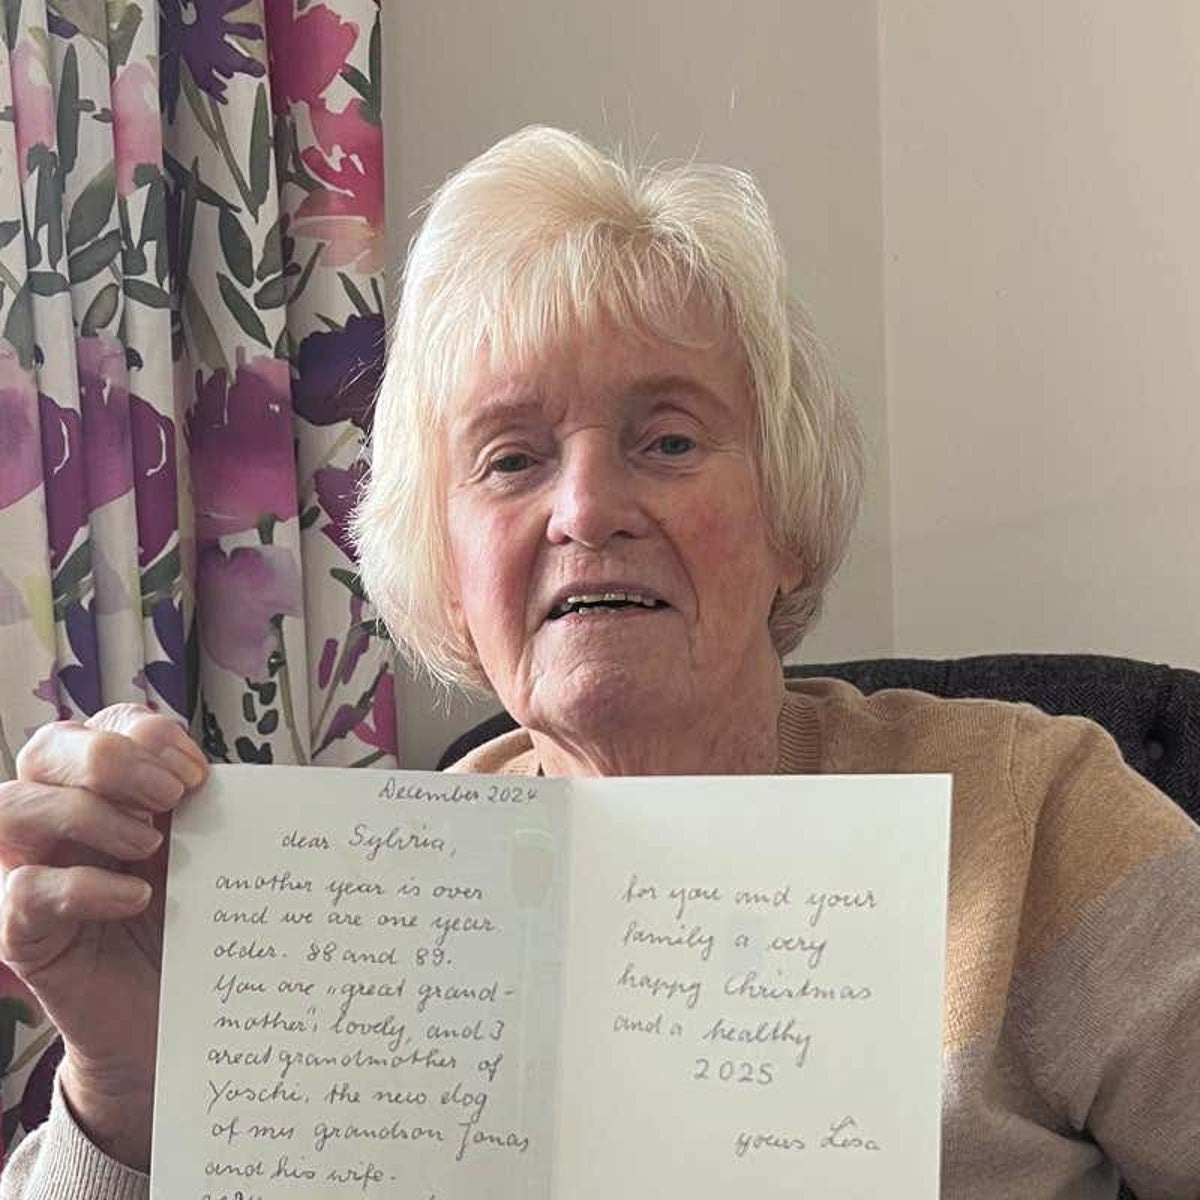 December 2024
dear Sylvia,
another year is over
and we are one year
older. 88 and 89.
You are „great grand-
mother", lovely, and I
great grandmother of
Yoschi, the new dog
of my grandson Jonas
and his wife.
for you and your
family a very
happy Christmas
and a healthy
2025
yours Lisa